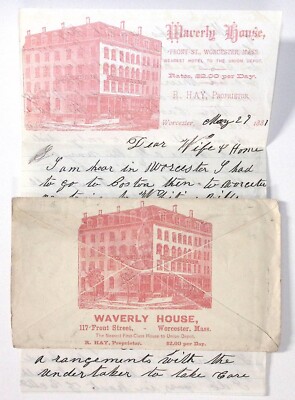 Waverly House,
FRONT ST., WORCESTER, MASS.
NEAREST HOTEL TO THE UNION DEPOT
Rates, $2.00 per Day.
R. HAY, PROPRIETOR.
Worcester, May 29 1881
Dear Wife & Home
I am hear in Worcester I had
to go to Boston then to Worcester
WAVERLY HOUSE,
117 Front Street, - Worcester, Mass.
The Nearest First Class House to Union Depot.
R. HAY, Proprietor. $2.00 per Day.
a rangements with the
undertaker to take Care